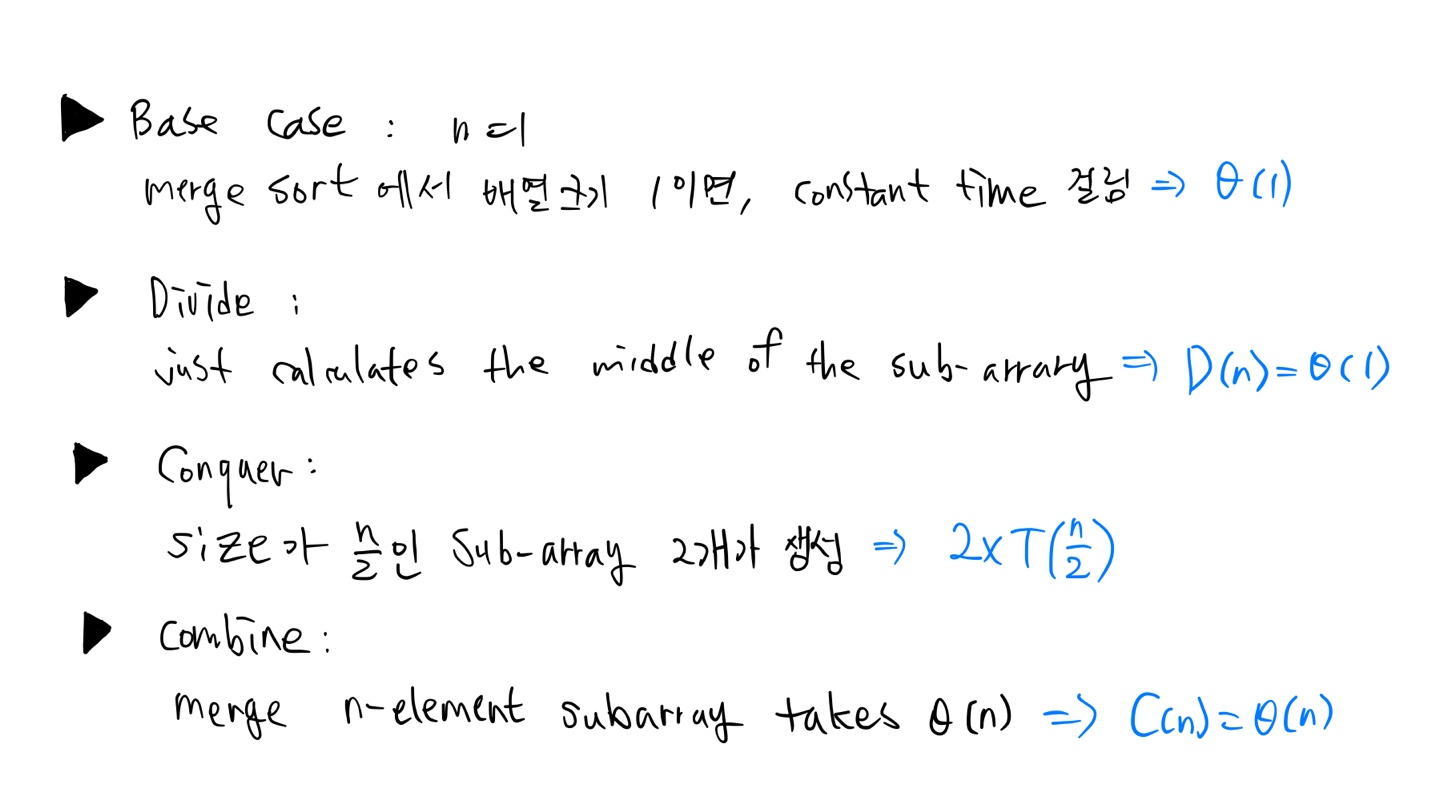 ▶ Base case : n=1
merge sort 에서 배열크기 1이면, constant time 걸림 ⇒ θ(1)
▶ Divide :
just calculates the middle of the sub-arrary ⇒ D(n)=θ(1)
▶ Conquer :
size가 n/2인 sub-array 2개가 생성 ⇒ 2xT(n/2)
▶ Combine :
merge n-element subarray takes θ(n) ⇒ C(n)=θ(n)